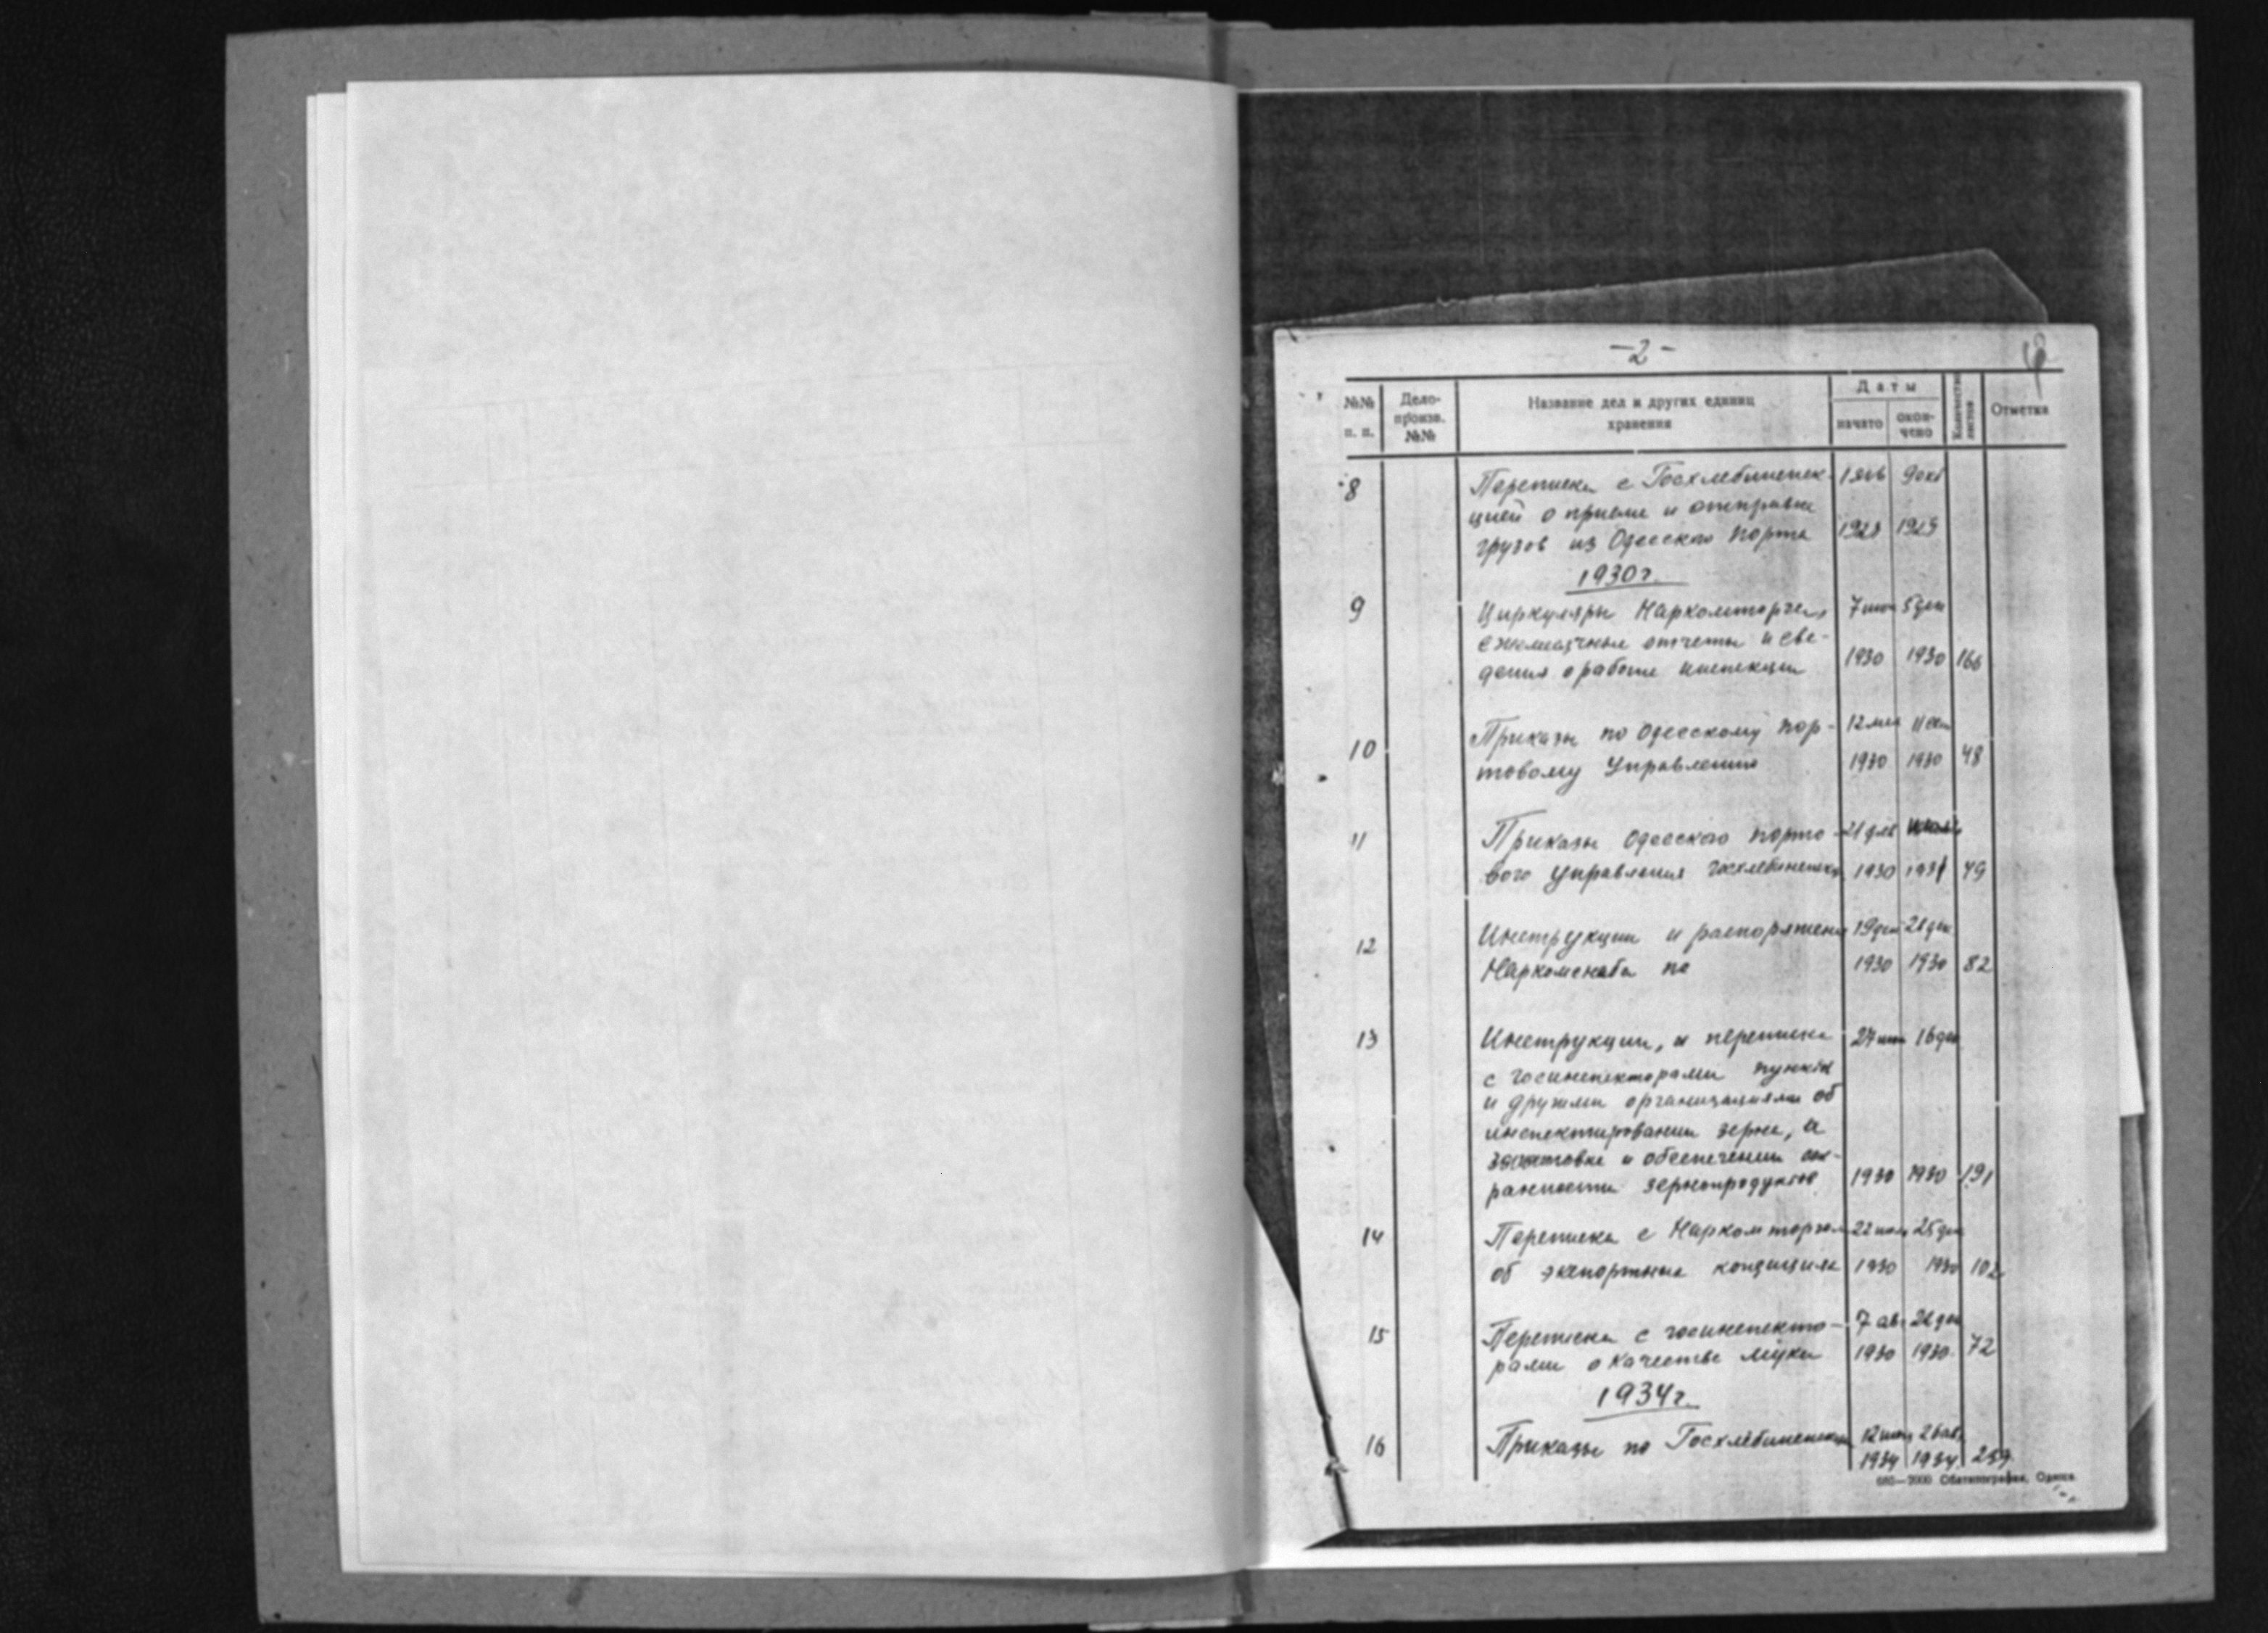 -2-
№№ п. п.
Дело-произв. №№
Название дел и других единиц хранения
Даты
начато
окончено
Количество листов
Отметка
8 Переписка с Госхлебинспек- 1 янв 9 окт
цией о приеме и отправке
грузов из Одесского порта 1928 1929
1930 г.
9 Циркуляры Наркомторга, 7 5 дек
ежемесячные отчеты и све-
дения о работе инспекции 1930 1930 166
10 Приказы по Одесскому пор- 12 мая 11 сен
товому Управлению 1930 1930 48
11 Приказы Одесского порто- 21
вого Управления Госхлебинспекц 1930 1931 49
12 Инструкции и распоряжени 19 дек 21 дек
Наркомснаба по 1930 1930 82
13 Инструкции, и переписка 24 16 дек
с госинспекторами пунктов
и другими организациями об
инспектировании зерна, и
заготовке и обеспечении сох-
ранности зернопродуктов 1930 1930 191
14 Переписка с Наркомторгом 22 25 дек
об экспортных кондициях 1930 1930 102
15 Переписка с госинспекто- 7 авг 21 дек
рами о качестве муки 1930 1930. 72
1934 г.
16 Приказы по Госхлебинспекции 12 26 авг
1934 1934
680—2000 Облтипография, Одесса